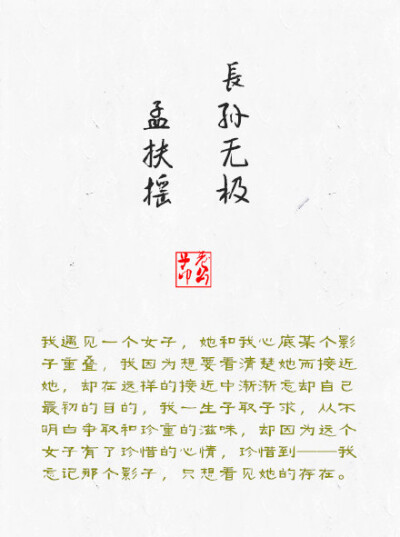 長孙无极
孟扶摇
我遇见一个女子，她和我心底某个影
子重叠，我因为想要看清楚她而接近
她，却在这样的接近中渐渐忘却自己
最初的目的，我一生予取予求，从不
明白争取和珍重的滋味，却因为这个
女子有了珍惜的心情，珍惜到——我
忘记那个影子，只想看见她的存在。